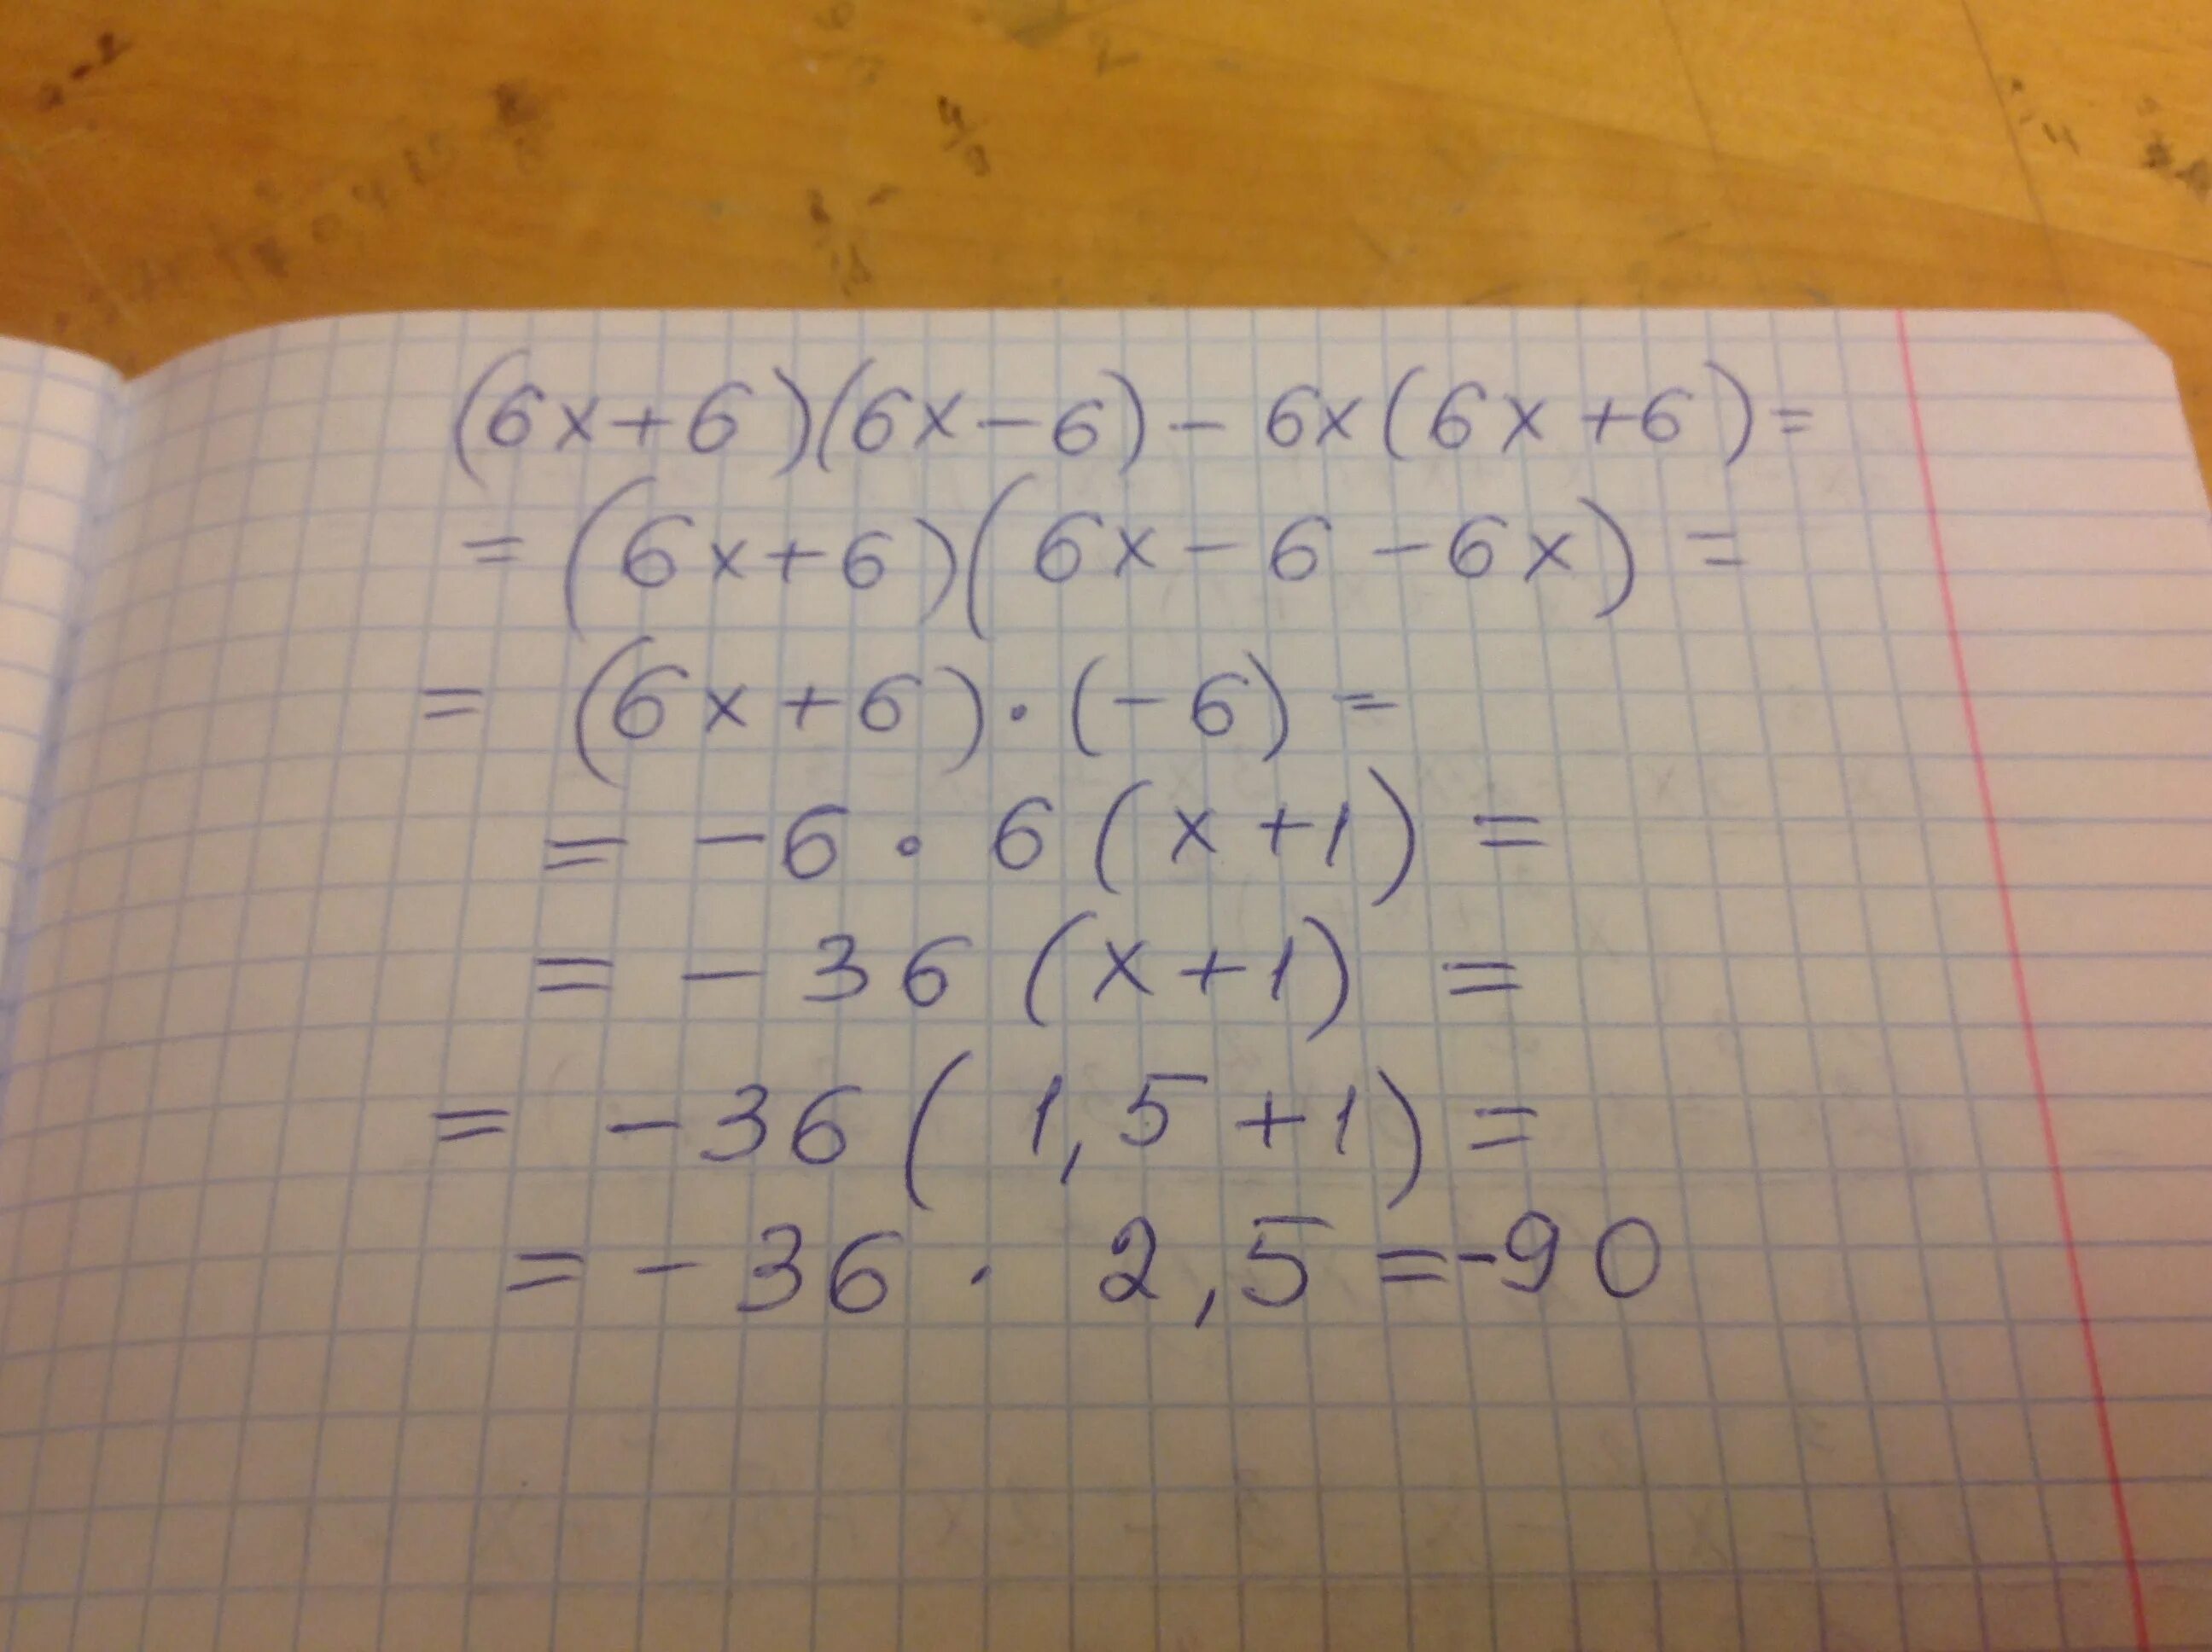 (6x+6)(6x-6)-6x(6x+6)=
=(6x+6)(6x-6-6x)=
=(6x+6)·(-6)=
=-6·6(x+1)=
=-36(x+1)=
=-36(1,5+1)=
=-36·2,5=-90